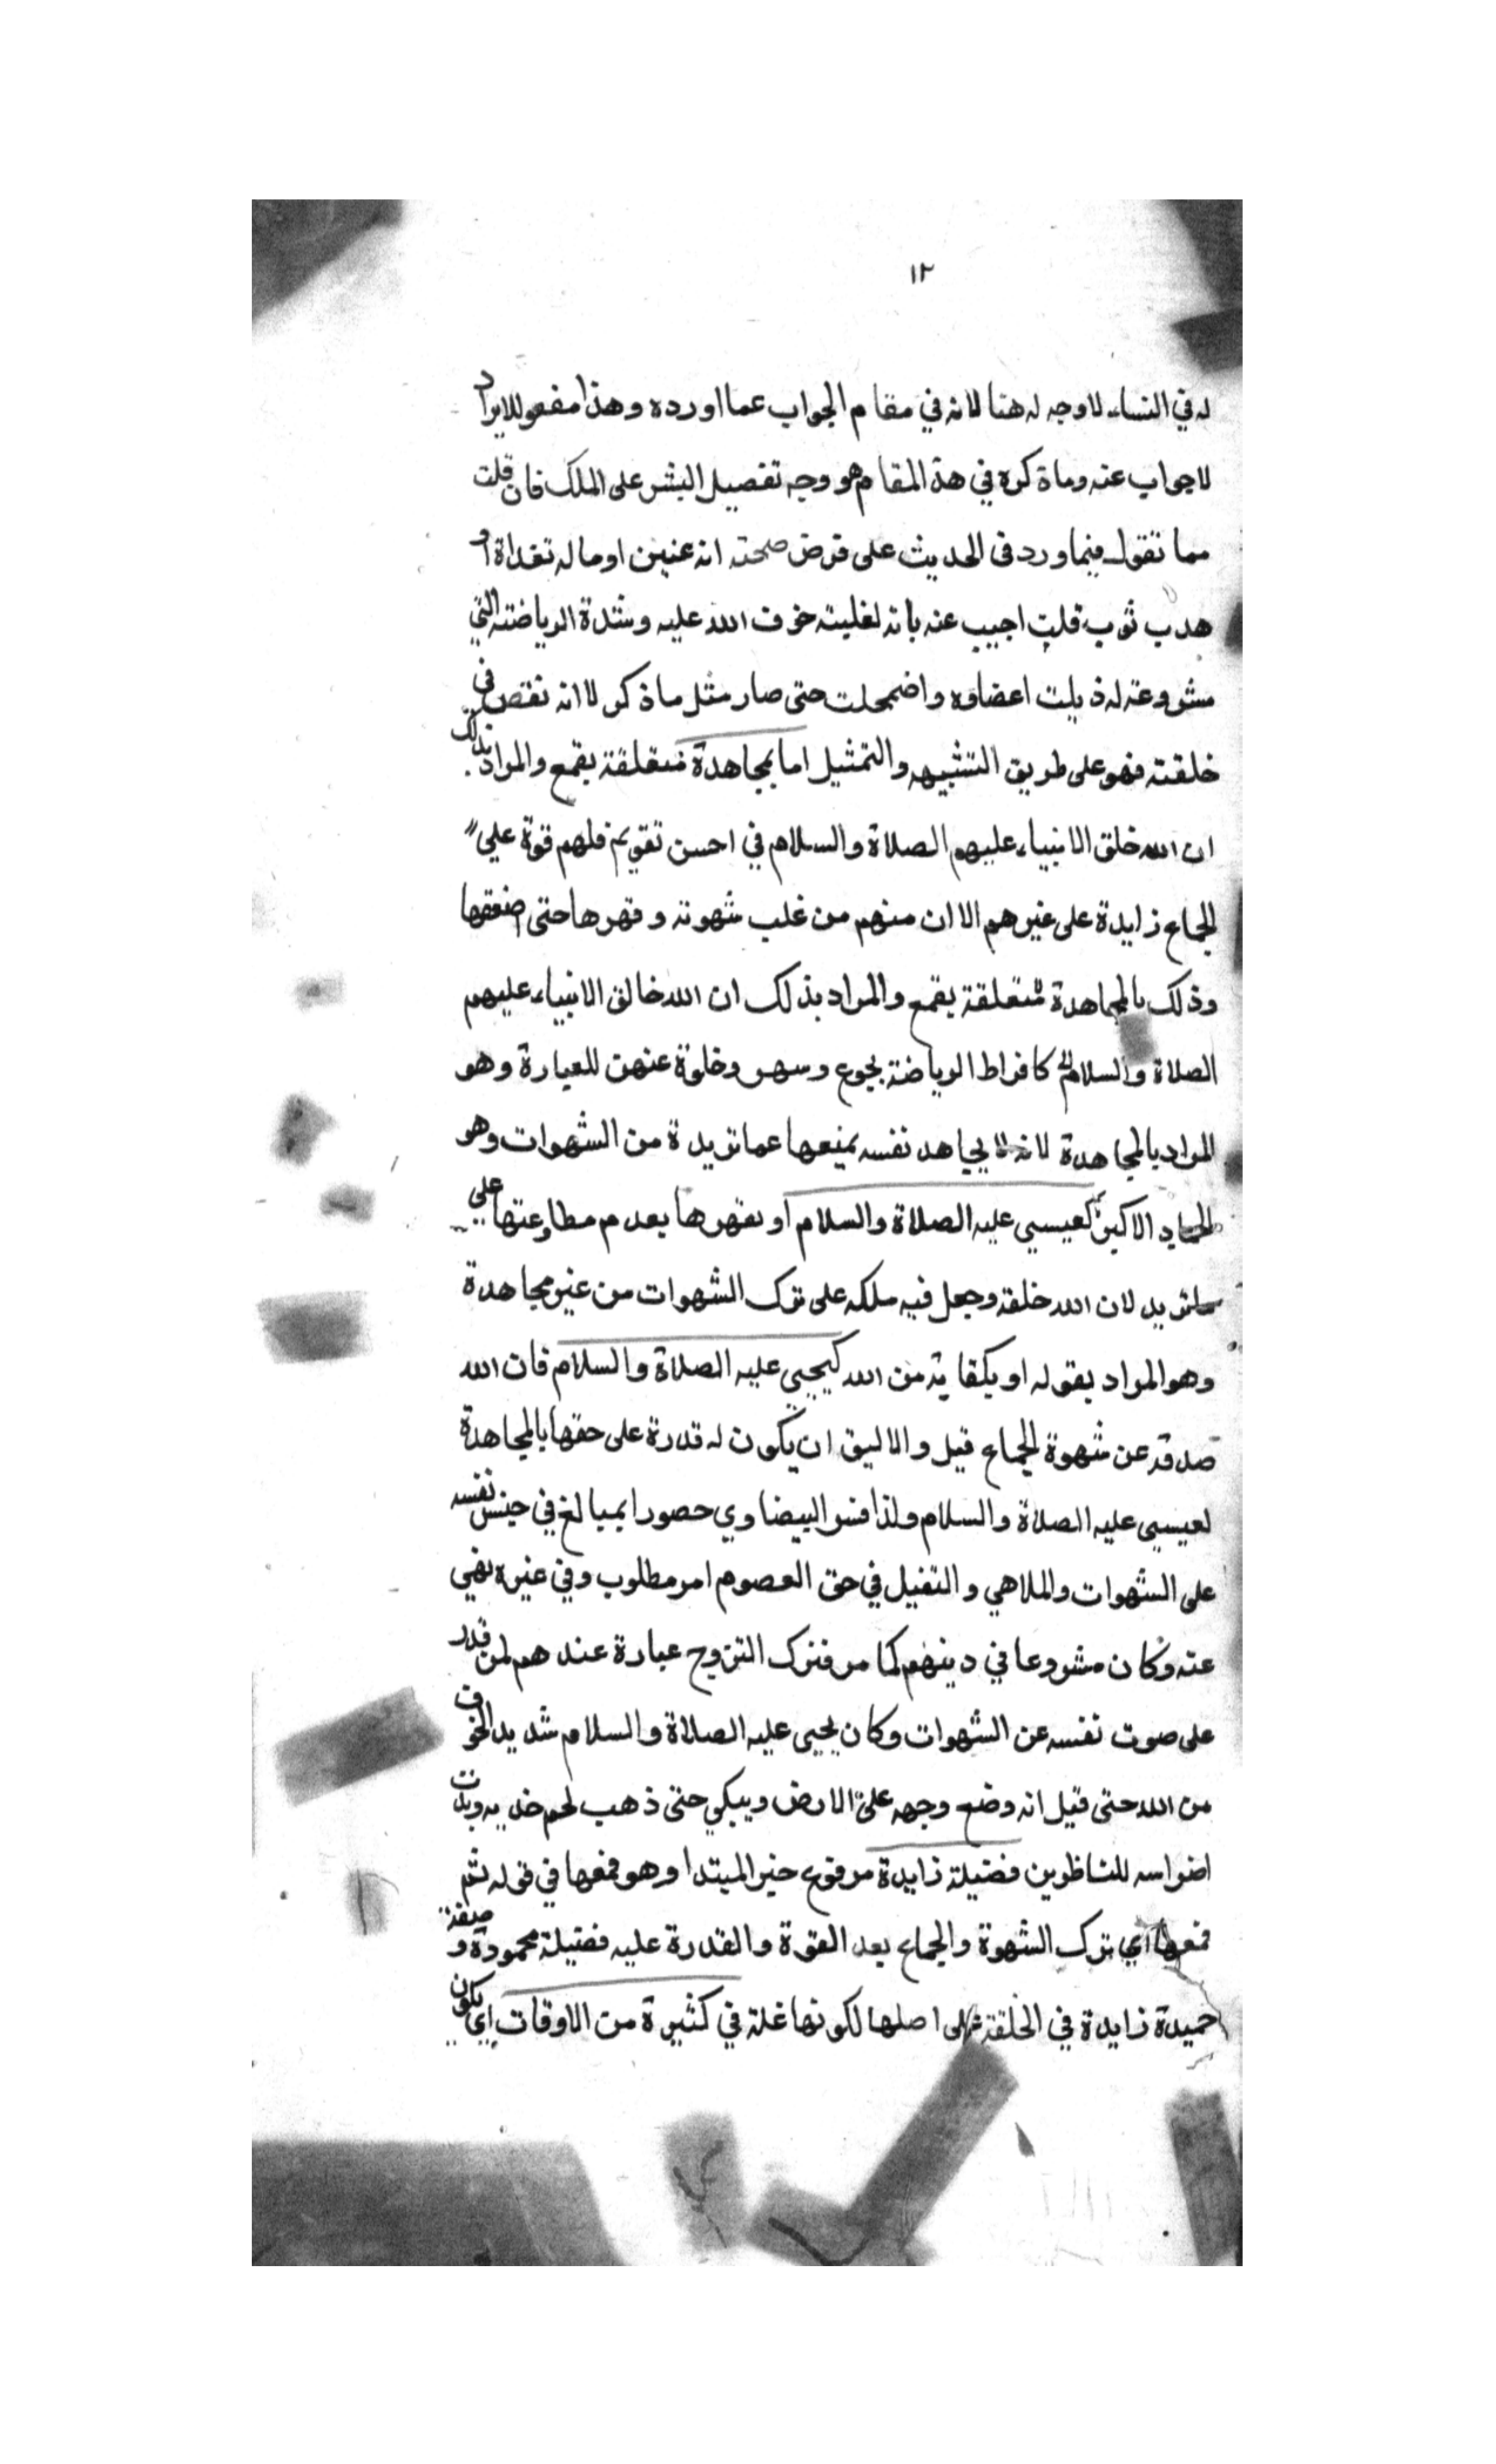 ١٢
له في النساء لا وجه له هنا لانه في مقام الجواب عما اورده وهذا مفعول للايراد
لا جواب عنه وماذكره في هذا المقام هو وجه تفضيل البشر على الملك فان قلت
مما تقول فيما ورد في الحديث على فرض صحته انه عنين او ماله كقذاة او
هدب ثوب قلت اجيب عنه بانه لغلبة خوف الله عليه وشدة الرياضة التي
مشروعة له ذبلت اعضاوه واضمحلت حتى صار مثل ماذكر لا انه نقص في
خلقته فهو على طريق التشبيه والتمثيل اما بمجاهدة متعلقة بقمع والمراد بذلك
ان الله خلق الانبياء عليهم الصلاة والسلام في احسن تقويم فلهم قوة علي
الجماع زايدة على غيرهم الا ان منهم من غلب شهوته وقهرها حتى اضعفها
وذلك بالمجاهدة متعلقة بقمع والمراد بذلك ان الله خالق الانبياء عليهم
الصلاة والسلام الخ كافراط الرياضة بجوع وسهر وخلوة عنهن للعبارة وهو
المراد بالمجاهدة لانه لا يجاهد نفسه بمنعها عما تريدة من الشهوات وهو
الجهاد الاكبر كعيسي عليه الصلاة والسلام او بقهرها بعدم مطاوعتها علي
ماتريد لان الله خلقه وجعل فيه ملكه على ترك الشهوات من غير مجاهدة
وهو المراد بقوله او بكفاية من الله كيحيي عليه الصلاة والسلام فان الله
صدقه عن شهوة الجماع قيل والاليق ان يكون له قدرة على حقها بالمجاهدة
لعيسي عليه الصلاة والسلام ولذا فسر البيضاوي حصورا بمبالغ في حبس نفسه
على الشهوات والملاهي والتفيل في حق المعصوم امر مطلوب وفي غيره نهي
عنه وكان مشروعا في دينهم كما مر فترك التزوج عبارة عندهم لمن قدر
على صوت نفسه عن الشهوات وكان يحيى عليه الصلاة والسلام شديد الخوف
من الله حتى قيل انه وضع وجهه على الارض ويبكي حتى ذهب لحم خديه وبدت
اضراسه للناظرين فضيلة زايدة مرفوع خبر المبتدا وهو قمعها في قوله ثم
قمعها اي ترك الشهوة والجماع بعد القوة والقدرة عليه فضيلة محمودة وصفة
حميدة زايدة في الخلقة على اصلها لكونها غلة في كثيرة من الاوقات اي يكون